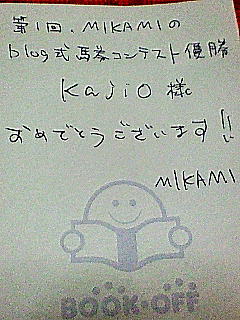 第1回、MIKAMIの
blog式馬券コンテスト優勝
Kajio 様
おめでとうございます!!
MIKAMI
BOOK·OFF